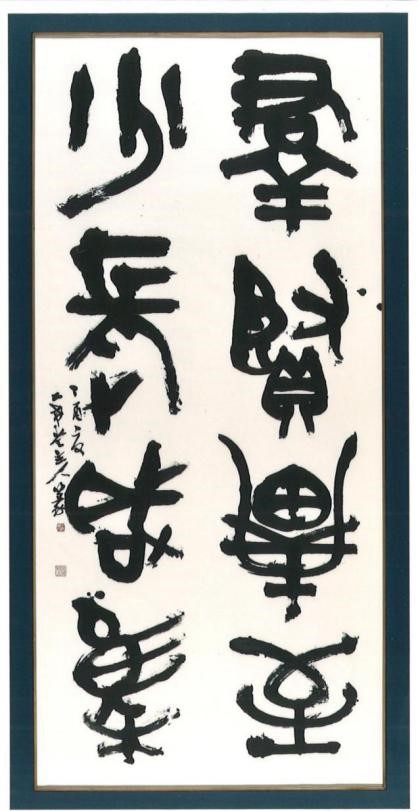 羣賢畢至
少長咸集
丁酉夏
主人